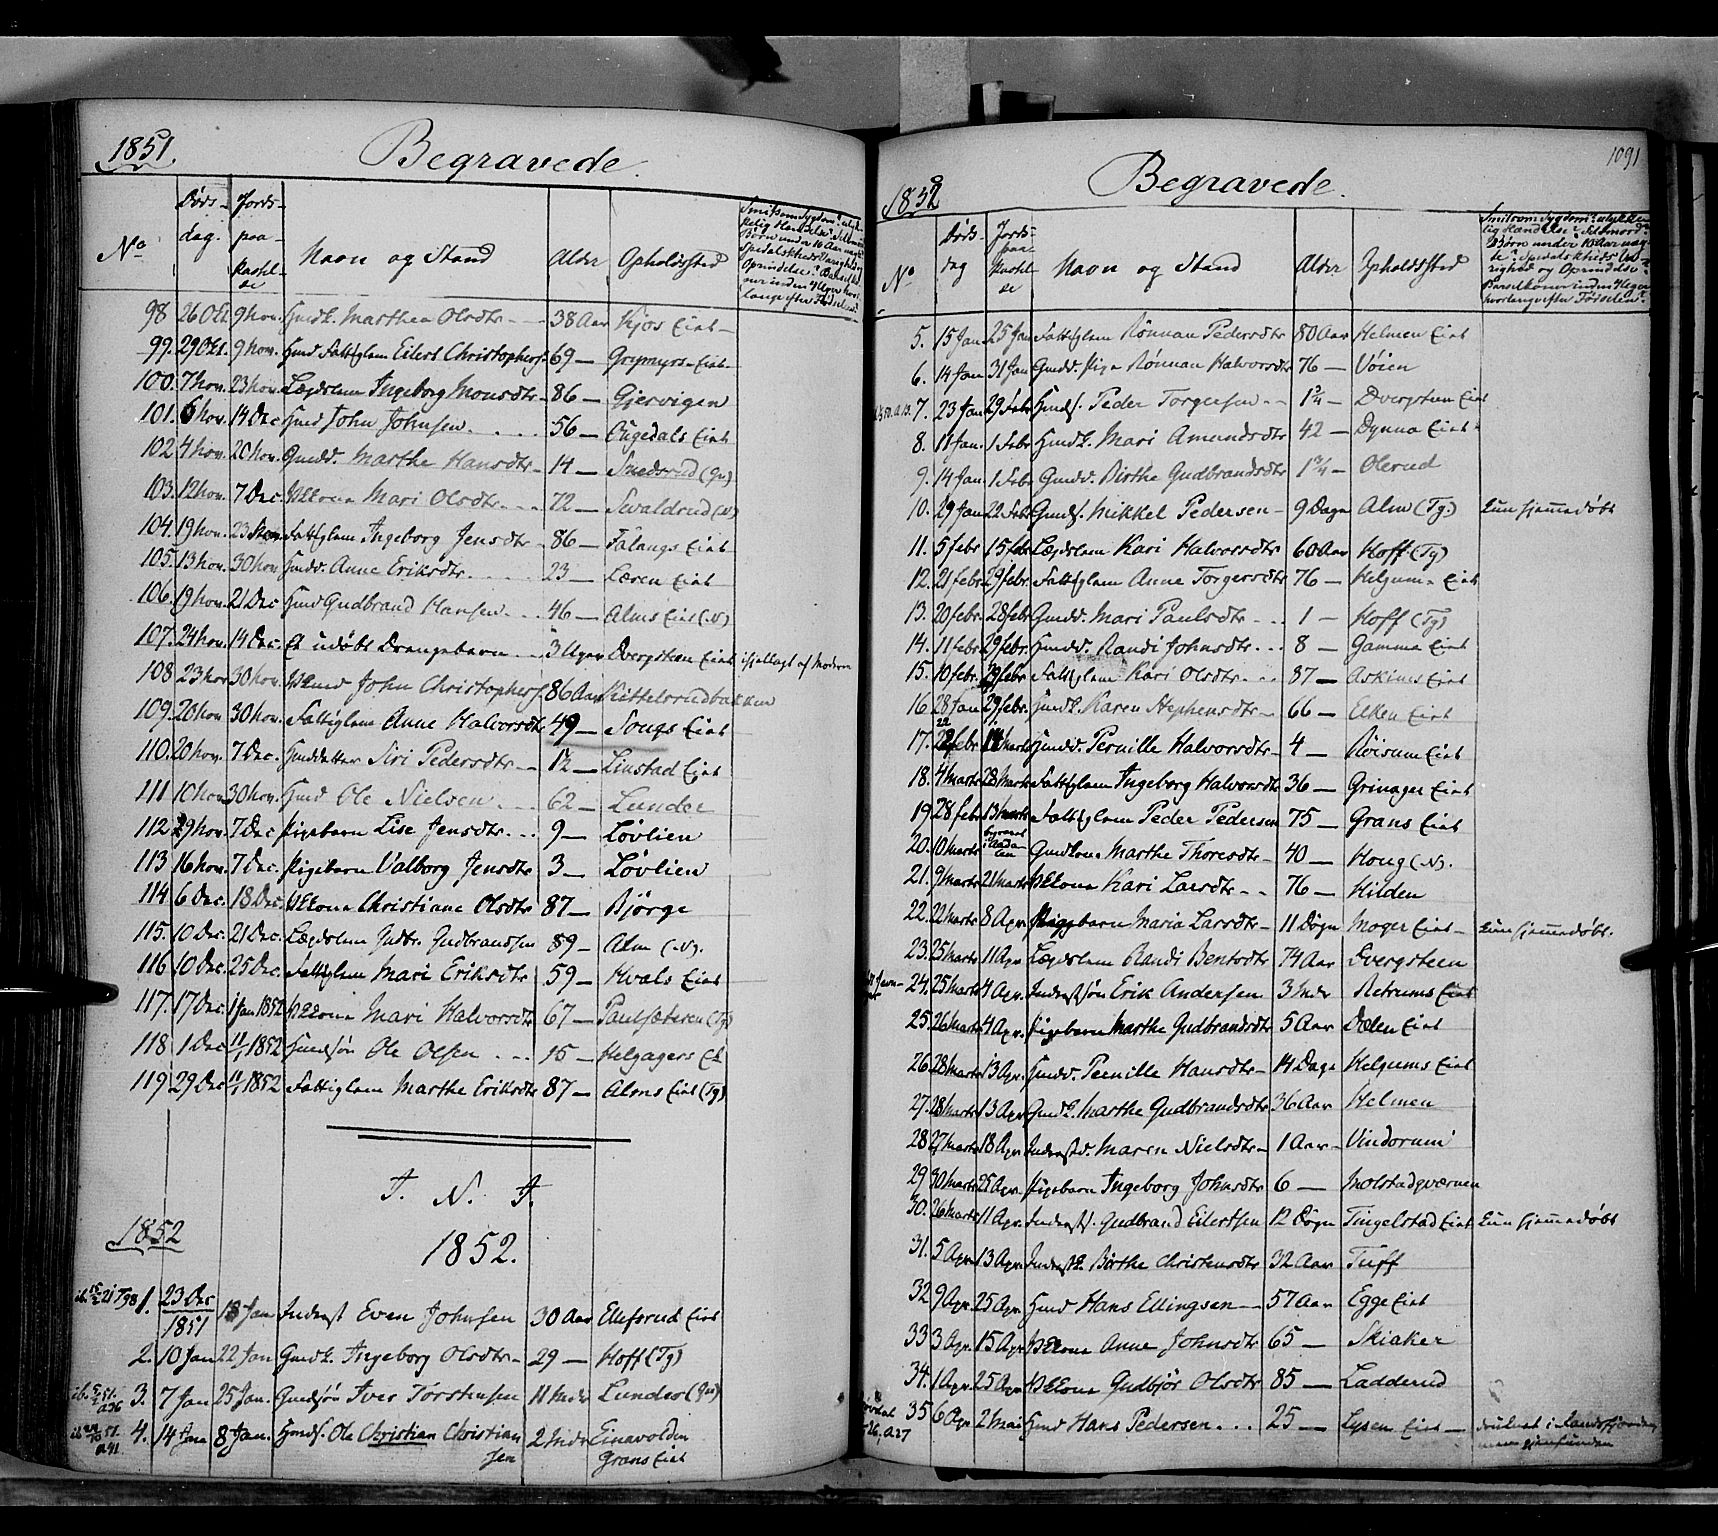 1851.
Begravede.
No
Døds-
dag.
Jords-
paa-
kastel-
se
Navn og Stand
Alder
Opholdssted
98 26 Okt 9 nov. Huusk. Marthea Olsdtr 38 Aar Kjos Eiet
99. 29 Okt. 9 nov. Huusd Fattiglem Eilert Christophers. 69 — Grymyrs Eiet
100. 7 nov. 23 nov. Lægdslem Ingeborg Monsdtr 86 — Gjervigen
101. 6 nov. 14 Dec Huusd John Johnsen 56 — Eiet
102 4 nov. 20 nov. Gmdd. Marthe Hansdtr 14 — Smedsrud (Gr)
103. 12 nov. 7 Dec. Mari Olsdtr 72 — Svaldrud (N)
104. 19 nov. 23 nov. Fattiglem Ingeborg Jensdtr 86 — Falangs Eiet
105. 13 nov. 30 nov Huusd. Anne Eriksdtr. 23 — Læren Eiet
106. 19 nov. 21 Dec Husmd Gudbrand Hansen 46 — Alms Eiet (N)
107. 24 nov. 14 Dec. Et udøbt Drengebarn 3 Uger Dvergsten Eiet ihjellagt af Moderen
108 23 nov 30 nov. John Christophers. 86 Aar Kittelsrudbakken
109. 20 nov 30 nov. Fattiglem Anne Halvorsdtr 49 — Sougs Eiet
110. 20 nov. 7 Dec. Huusdatter Siri Pedersdtr 12 — Linstad Eiet
111 10 nov 30 nov. Husmd Ole Nielsen 62 — Lunder
112 29 nov. 7 Dec Pigebarn Lise Jensdtr 9 — Løvlien
113 16 nov. 7 Dec. Pigebarn Valborg Jensdtr 3 — Løvlien
114 6 Dec. 18 Dec. Christiane Olsdtr 87 — Bjørge
115. 10 Dec. 21 Dec. Lægdslem Gudbr. Gudbrandsen 89 — Alm (N).
116 10 Dec. 25 Dec. Fattiglem Mari Eriksdtr 59 — Hvals Eiet
117. 17 Dec. 1 Jan 1852 Mari Halvorsdtr 67 — Paulsæteren (Tg)
118 1 Dec 11/1 1852 Huussøn Ole Olsen 15 — Helgagers Et
119 29 Dec 11/1 1852 Fattiglem Marthe Eriksdtr 87 — Alms Eiet (Tg)
T. N. T.
1852
1852.
1. 23 Dec 1851 18 Jan Inderst Even Johnsen 30 Aar Elisrud Eiet
2. 10 Jan 22 Jan Gmdk. Ingeborg Olsdtr 29 — Hoff (Tg)
3. 7 Jan 25 Jan. Gmdsøn Iver Torstensen 11 Mdr Lunder (Gr)
4. 14 Jan 8 Jan. Huusds. Ole Christian Christian- 2 Mdr Einavolden
sen Grans Eiet
1091
1852
Begravede.
No
Døds-
dag
Jords-
paa-
kastel-
se
Navn og Stand
Alder
Opholdssted
5. 15 Jan 25 Jan Fattiglem Rønnau Pedersdtr 80 Aar Helmen Eiet
6. 14 Jan 31 Jan Gmdd. Pige Rønnau Halvorsdtr 76 — Vøien
7. 23 Jan 29 Febr Huusds. Peder Torgersen 1 3/4 — Dvergsten Eiet
8. 11 Jan. 1 Febr Huusk. Mari Amundsdtr 42 — Dynna Eiet
9. 14 Jan 1 Febr Gmdd. Birthe Gudbrandsdtr 1 3/4 — Olerud
10. 29 Jan 22 Febr Gmds. Mikkel Pedersen 9 Dage Alm (Tg.) kun hjemmedøbt
11. 5 febr 15 febr Lægdslem Kari Halvorsdtr 60 Aar Hoff (Tg)
12. 21 febr. 29 febr. Fattiglem Anne Torgersdtr 76 — Helgums Eiet
13. 20 febr. 28 febr Gmdd. Mari Paulsdtr 1 — Hoff (Tg)
14. 11 febr. 29 febr. Huusd. Randi Johnsdtr 8 — Gamme Eiet
15. 10 febr. 29 febr Fattiglem Kari Olsdtr 87 — Askims Eiet
16 28 Jan 29 febr. Huusk. Karen Stephensdtr 66 — Elken Eiet
17. 22 febr 14 Marts Huusd. Pernille Halvorsdtr 4 — Røisum Eiet
18. 4 Marts 28 Marts Fattiglem Ingeborg Halvorsdtr 36 — Grinager Eiet
19 28 febr 13 Marts Fattiglem Peder Pedersen 75 — Grans Eiet
20. 10 Marts Marthe Thoresdtr 40 — Houg (N).
21. 9 Marts 21 Marts Kari Larsdtr 76 — Hilden
22. 22 Marts 8 Apr. Pigebarn Maria Larsdtr 11 Døgn Moger Eiet kun hjemmedøbt.
23. 25 Marts 11 Apr Lægdslem Randi Bentsdtr 74 Aar Dvergsteen
24. 25 Marts 4 Apr. Inderstsøn Erik Andersen 3 Mdr Retrums Eiet
25. 26 Marts 4 Apr. Pigebarn Marthe Gudbrandsdtr 5 Aar Dælen Eiet
26. 28 Marts 13 Apr. Huusd. Pernille Hansdtr 14 Dage Helgums Eiet
27. 28 Marts 13 Apr. Gmdk. Marthe Gudbrandsdtr 36 Aar Helmen
28 27 Marts 18 Apr. Inderstd. Maren Nielsdtr 1 Aar Vindorum
29 30 Marts 25 Apr. Pigebarn Ingeborg Johnsdtr 6 — Molstadqværnen
30. 26 Marts 11 Apr. Indersts. Gudbrand Eilertsen 12 Døgn Tingelstad Eiet kun hjemmedøbt
31. 5 Apr. 13 Apr. Inderstk. Birthe Christensdtr 32 Aar Tuff
32 9 Apr. 25 Apr. Husmd Hans Ellingsen 57 Aar Egge Eiet
33 3 Apr. 15 Apr. Anne Johnsdtr 65 — Skiaker
34. 1 Apr. 25 Apr. Gudbjør Olsdtr 85 — Ladderud
35 6 Apr. 2 Mai Husmd Hans Pedersen 25 — Lysen Eiet druknet i Randsfjorden,
men gjenfunden